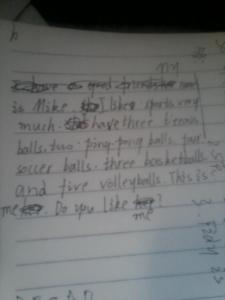 my
is Mike. I like sports very
much. have three tennis
balls, two ping-pong balls, four
soccer balls. three basketballs
and five volleyballs. This is
me. Do you like me?